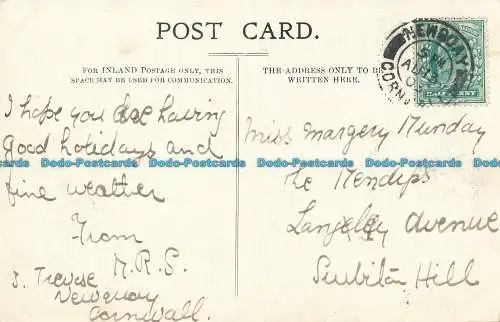 POST CARD.
FOR INLAND POSTAGE ONLY, THIS
SPACE MAY BE USED FOR COMMUNICATION.
THE ADDRESS ONLY TO BE
WRITTEN HERE.
NEWQUAY
AU
CORNWALL
I hope you are having
Good holidays and
fine weather
From
M.R.S.
3. Trevose
Newquay
Cornwall.
Miss Margery Munday
The Mendips
Langley Avenue
Surbiton Hill
Dodo-Postcards Dodo-Postcards Dodo-Postcards Dodo-Postcards Dodo-Postcards